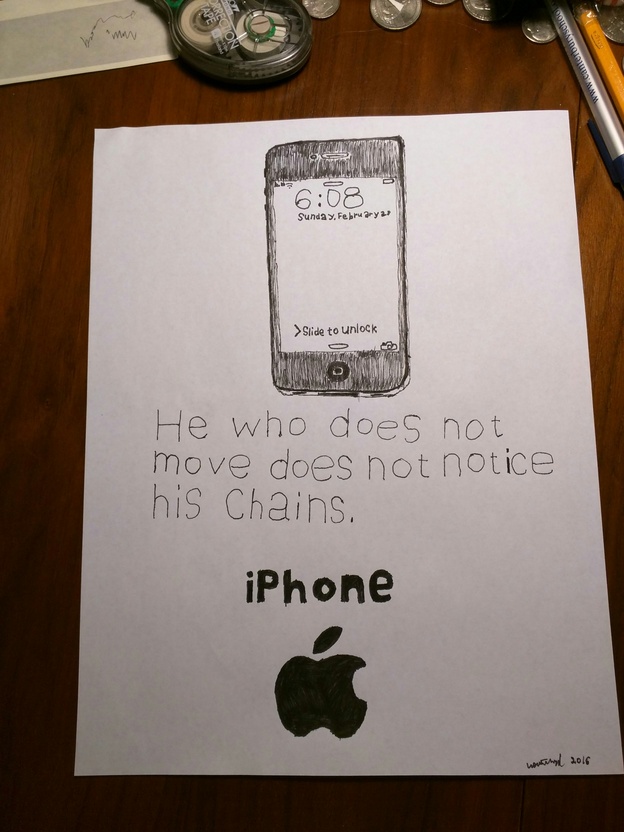 CORRECTION
TAPE
www.
6:08
Sunday, February 28
>Slide to unlock
He who does not
move does not notice
his Chains.
iPhone
2016